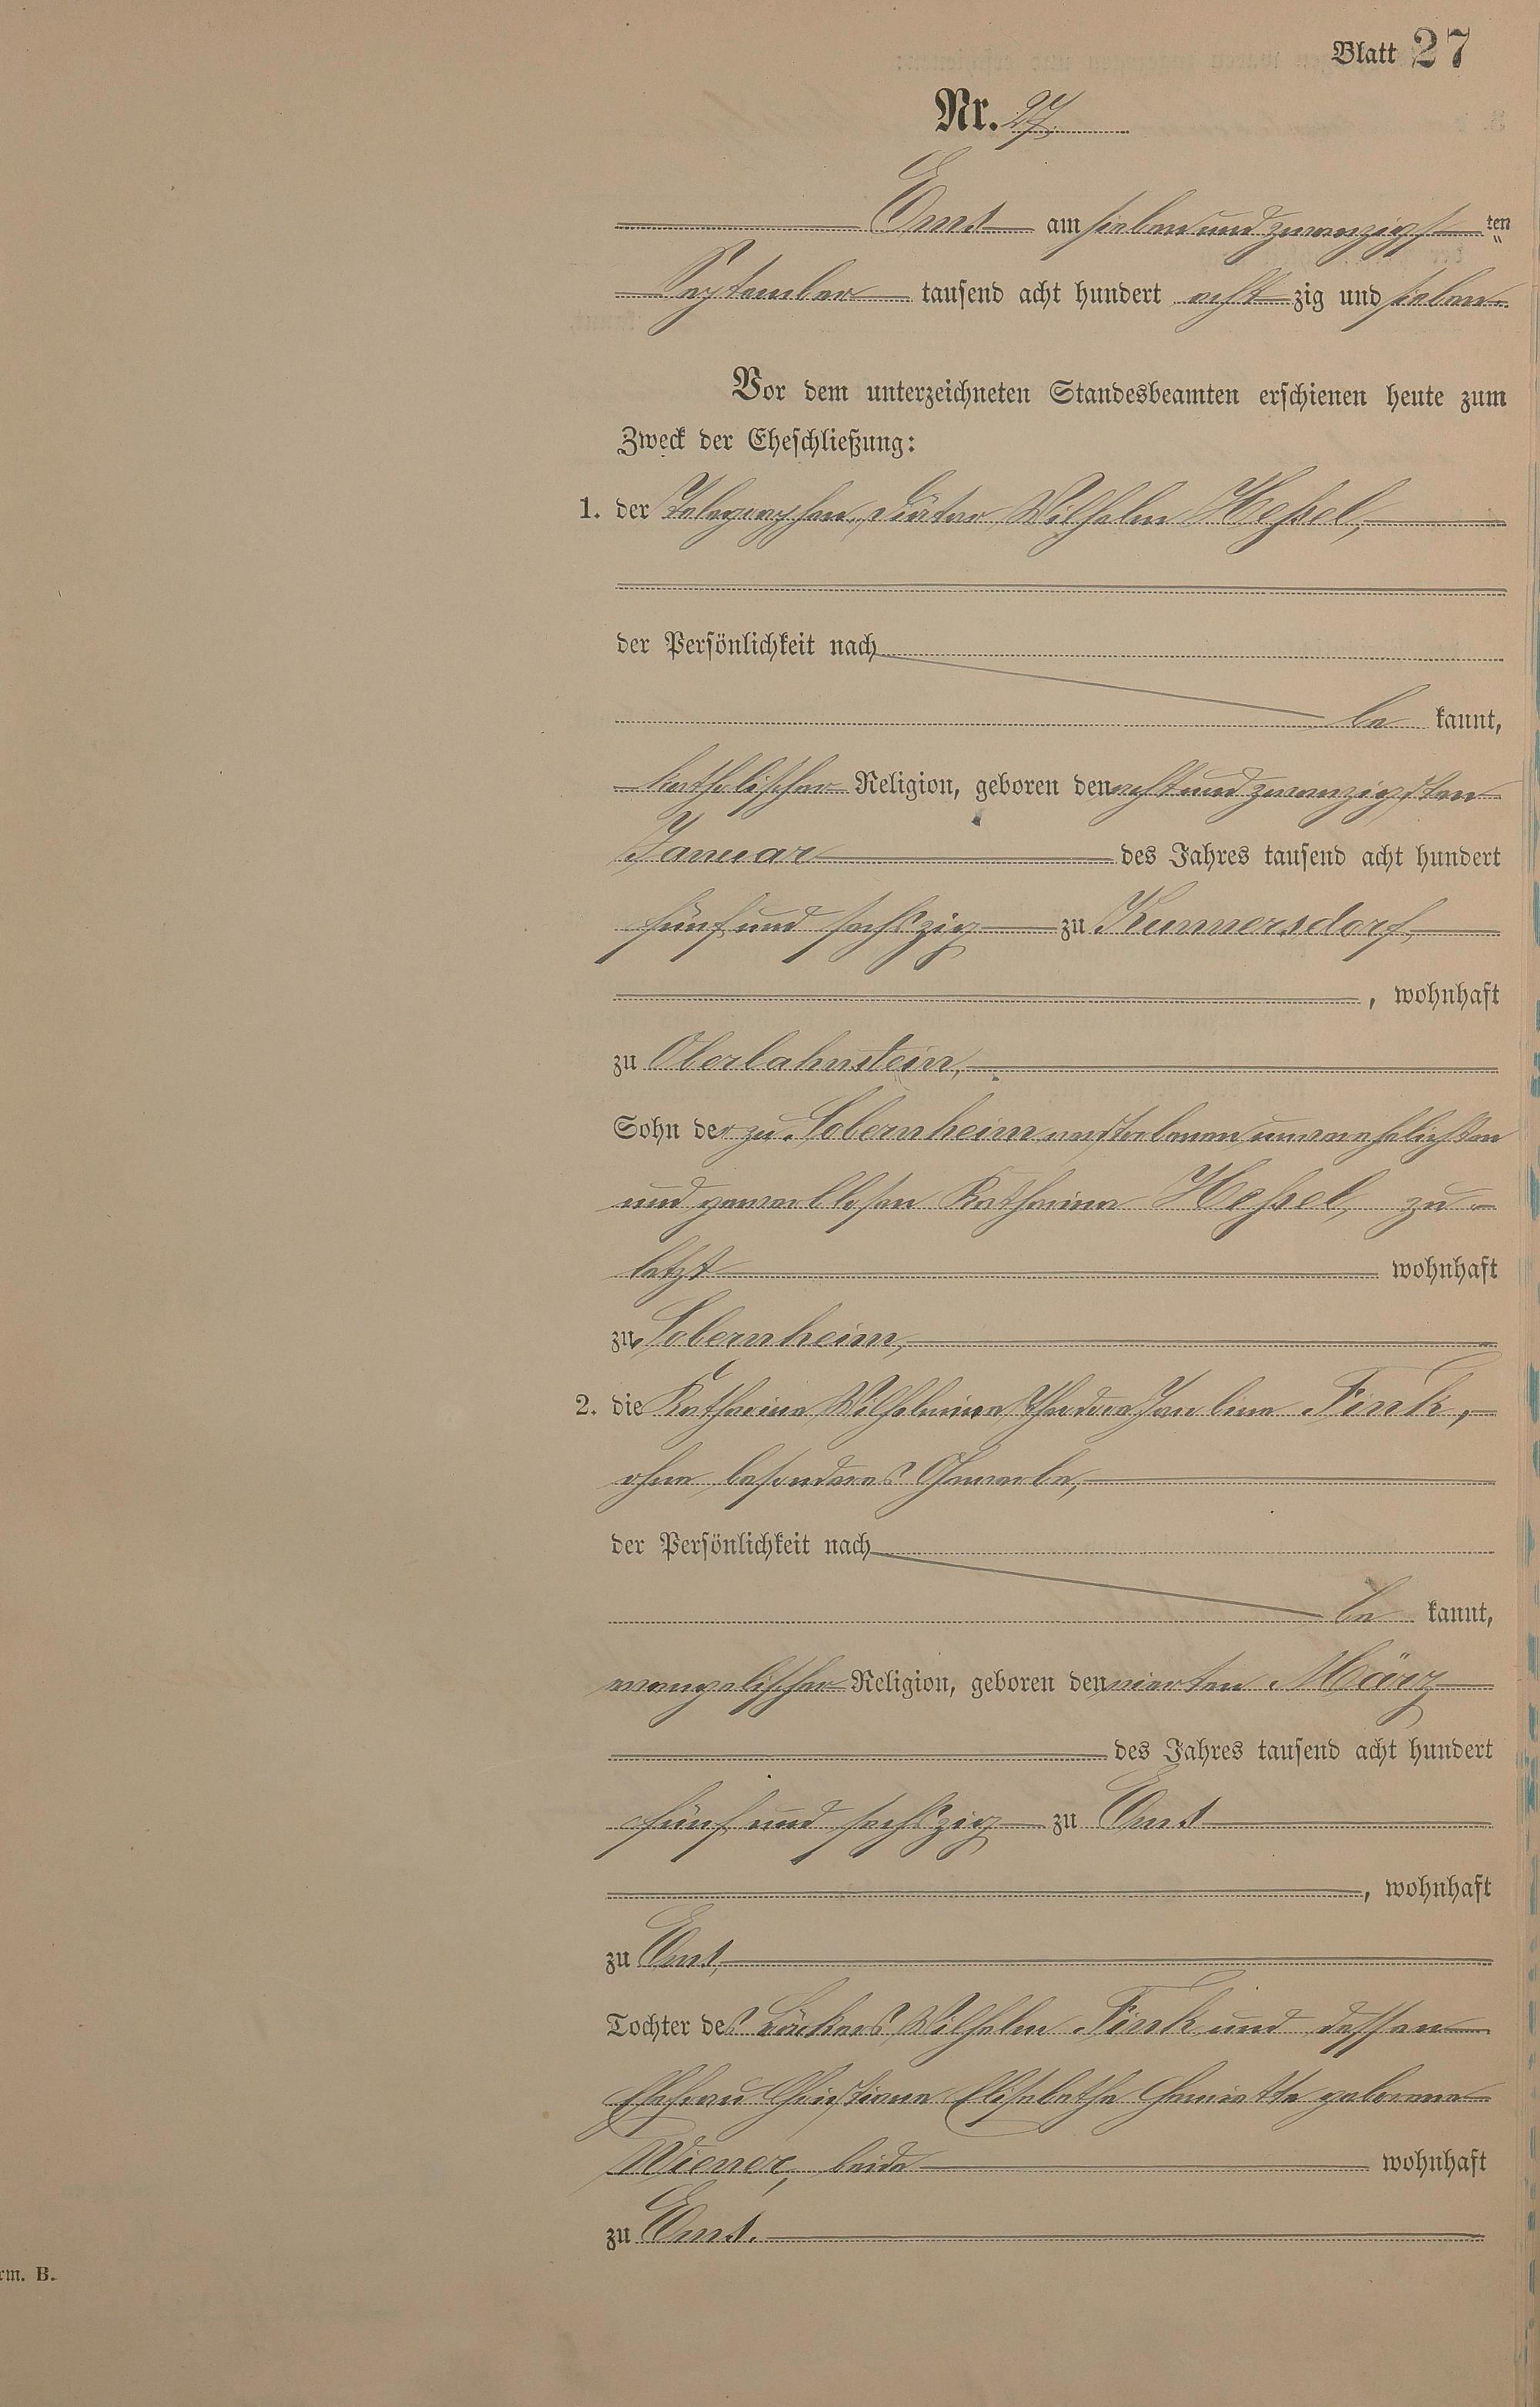 Blatt 27
Nr. 27.
Ems am sieben und zwanzigsten
September tausend acht hundert achtzig und sieben
Vor dem unterzeichneten Standesbeamten erschienen heute zum
Zweck der Eheschließung:
1. der Telegraphen-Diätar Wilhelm Heßel,
der Persönlichkeit nach
bekannt,
katholischer Religion, geboren den acht und zwanzigsten
Januar des Jahres tausend acht hundert
fünf und sechszig zu Kunnersdorf,
, wohnhaft
zu Oberlahnstein,
Sohn der zu Sobernheim verstorbenen unverehelichten
und gewerblosen Katharina Heßel, zu-
letzt wohnhaft
zu Sobernheim,
2. die Katharine Wilhelmine Theodore Pauline Fink,
ohne besonderes Gewerbe,
der Persönlichkeit nach
bekannt,
evangelischer Religion, geboren den vierten März
des Jahres tausend acht hundert
fünf und sechszig zu Ems
, wohnhaft
zu Ems,
Tochter des Bäckers Wilhelm Fink und dessen
Ehefrau Christiane Elisabethe Henriette geborene
Wiener, beide wohnhaft
zu Ems.
rm. B.